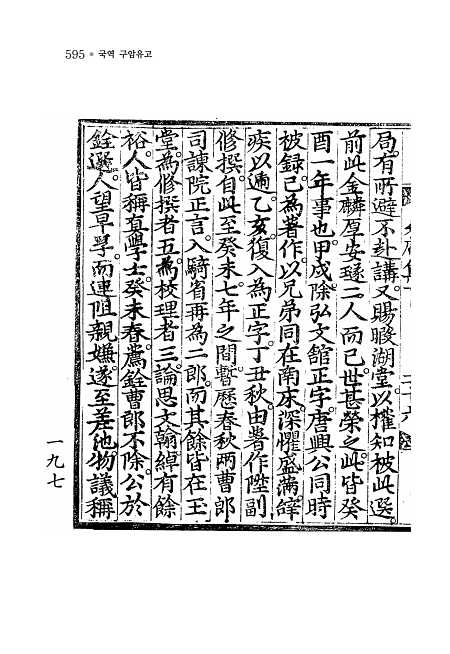 595 • 국역 구암유고
局有所避不赴講又賜暇湖堂以權知被此選
前此金麟厚安璲二人而已世甚榮之此皆癸
酉一年事也甲戌除弘文館正字唐興公同時
被錄已爲著作以兄弟同在南床深懼盛滿辭
疾以遞乙亥復入爲正字丁丑秋由著作陞副
修撰自此至癸未七年之間暫歷春秋兩曹郎
司諫院正言入騎省再爲二郎而其餘皆在玉
堂爲修撰者五爲校理者三論思文翰綽有餘
裕人皆稱眞學士癸未春薦銓曹郎不除公於
銓選人望早孚而連阻親嫌遂至差池物議稱
一九七